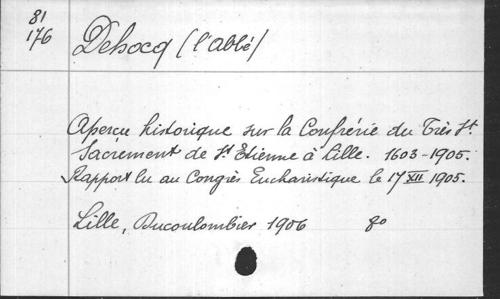 81
176
Dehocq (l'abbé)
Aperçu historique sur la Confrérie du Très St
Sacrement de St Etienne à Lille. 1603-1905.
Rapport lu au Congrès Eucharistique le 17 XII 1905.
Lille, Ducoulombier 1906 8o